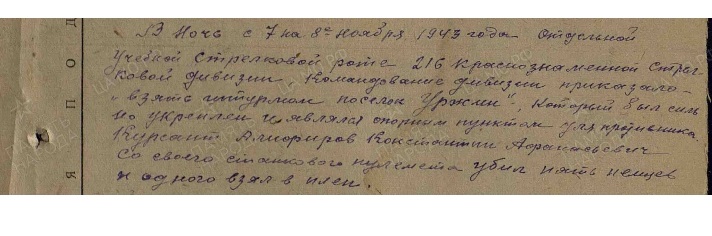 В Ночь с 7 на 8е ноября 1943 года Отдельной
Учебной Стрелковой роте 216 Краснознаменной Стрел-
ковой дивизии, Командование дивизии приказало-
"взять штурмом поселок Урожай", который был силь
но укреплен и являлся опорным пунктом для противника.
Курсант Константин
Со своего станкового пулемета убил пять немцев
и одного взял в плен.
Я П О Д